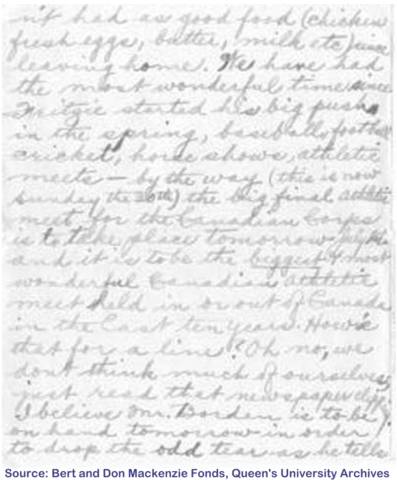 n't had as good food (chicken
fresh eggs, butter, milk etc) since
leaving home. We have had
the most wonderful time since
Fritzie started his big push
in the spring, baseball, football
cricket, horse shows, athletic
meets – by the way (this is now
Sunday the 30th) the big final athletic
meet for the Canadian Corps
is to take place tomorrow
and it is to be the biggest & most
wonderful Canadian athletic
meet held in or out of Canada
in the last ten years. How's
that for a line? Oh no, we
don't think much of ourselves
just read that newspaper
I believe Mr. Borden is to be
on hand tomorrow in order
to drop the odd tear as he tells
Source: Bert and Don Mackenzie Fonds, Queen's University Archives